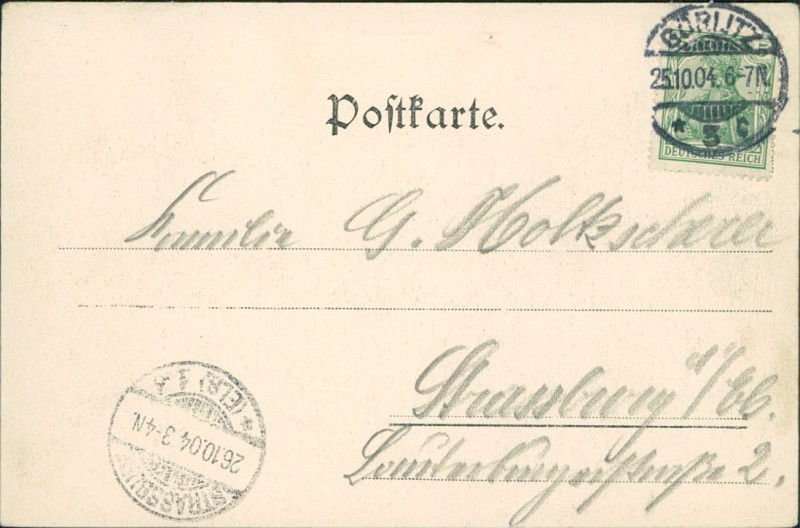 GÖRLITZ
25.10.04. 6-7N.
* 5 c
DEUTSCHES REICH
Postkarte.
Familie G.
Strassburg i/Els.
Lauterburgerstraße 2.
STRASSBURG
26.10.04 3-4N.
* (ELS.) 1